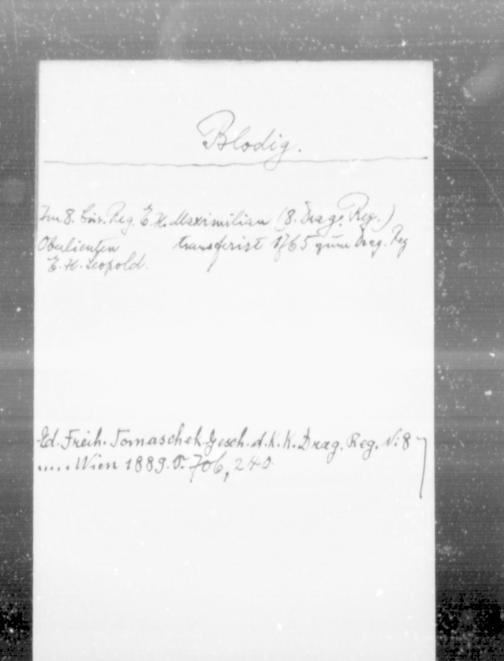 Blodig.
Im 8. Cür. Reg. E. H. Maximilian (8. Drag. Reg.)
transferirt 1765 zum Drag. Reg
E. H. Leopold.
Ed. Freih. Tomaschek Gesch. d. k. k. Drag. Reg. N: 8
..... Wien 1889. S. 706, 240